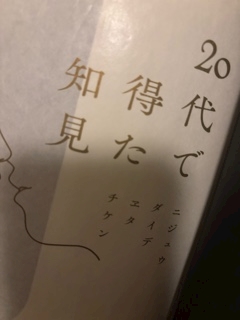 20代で
得た
知見
ニジュウ
ダイデ
エタ
チケン